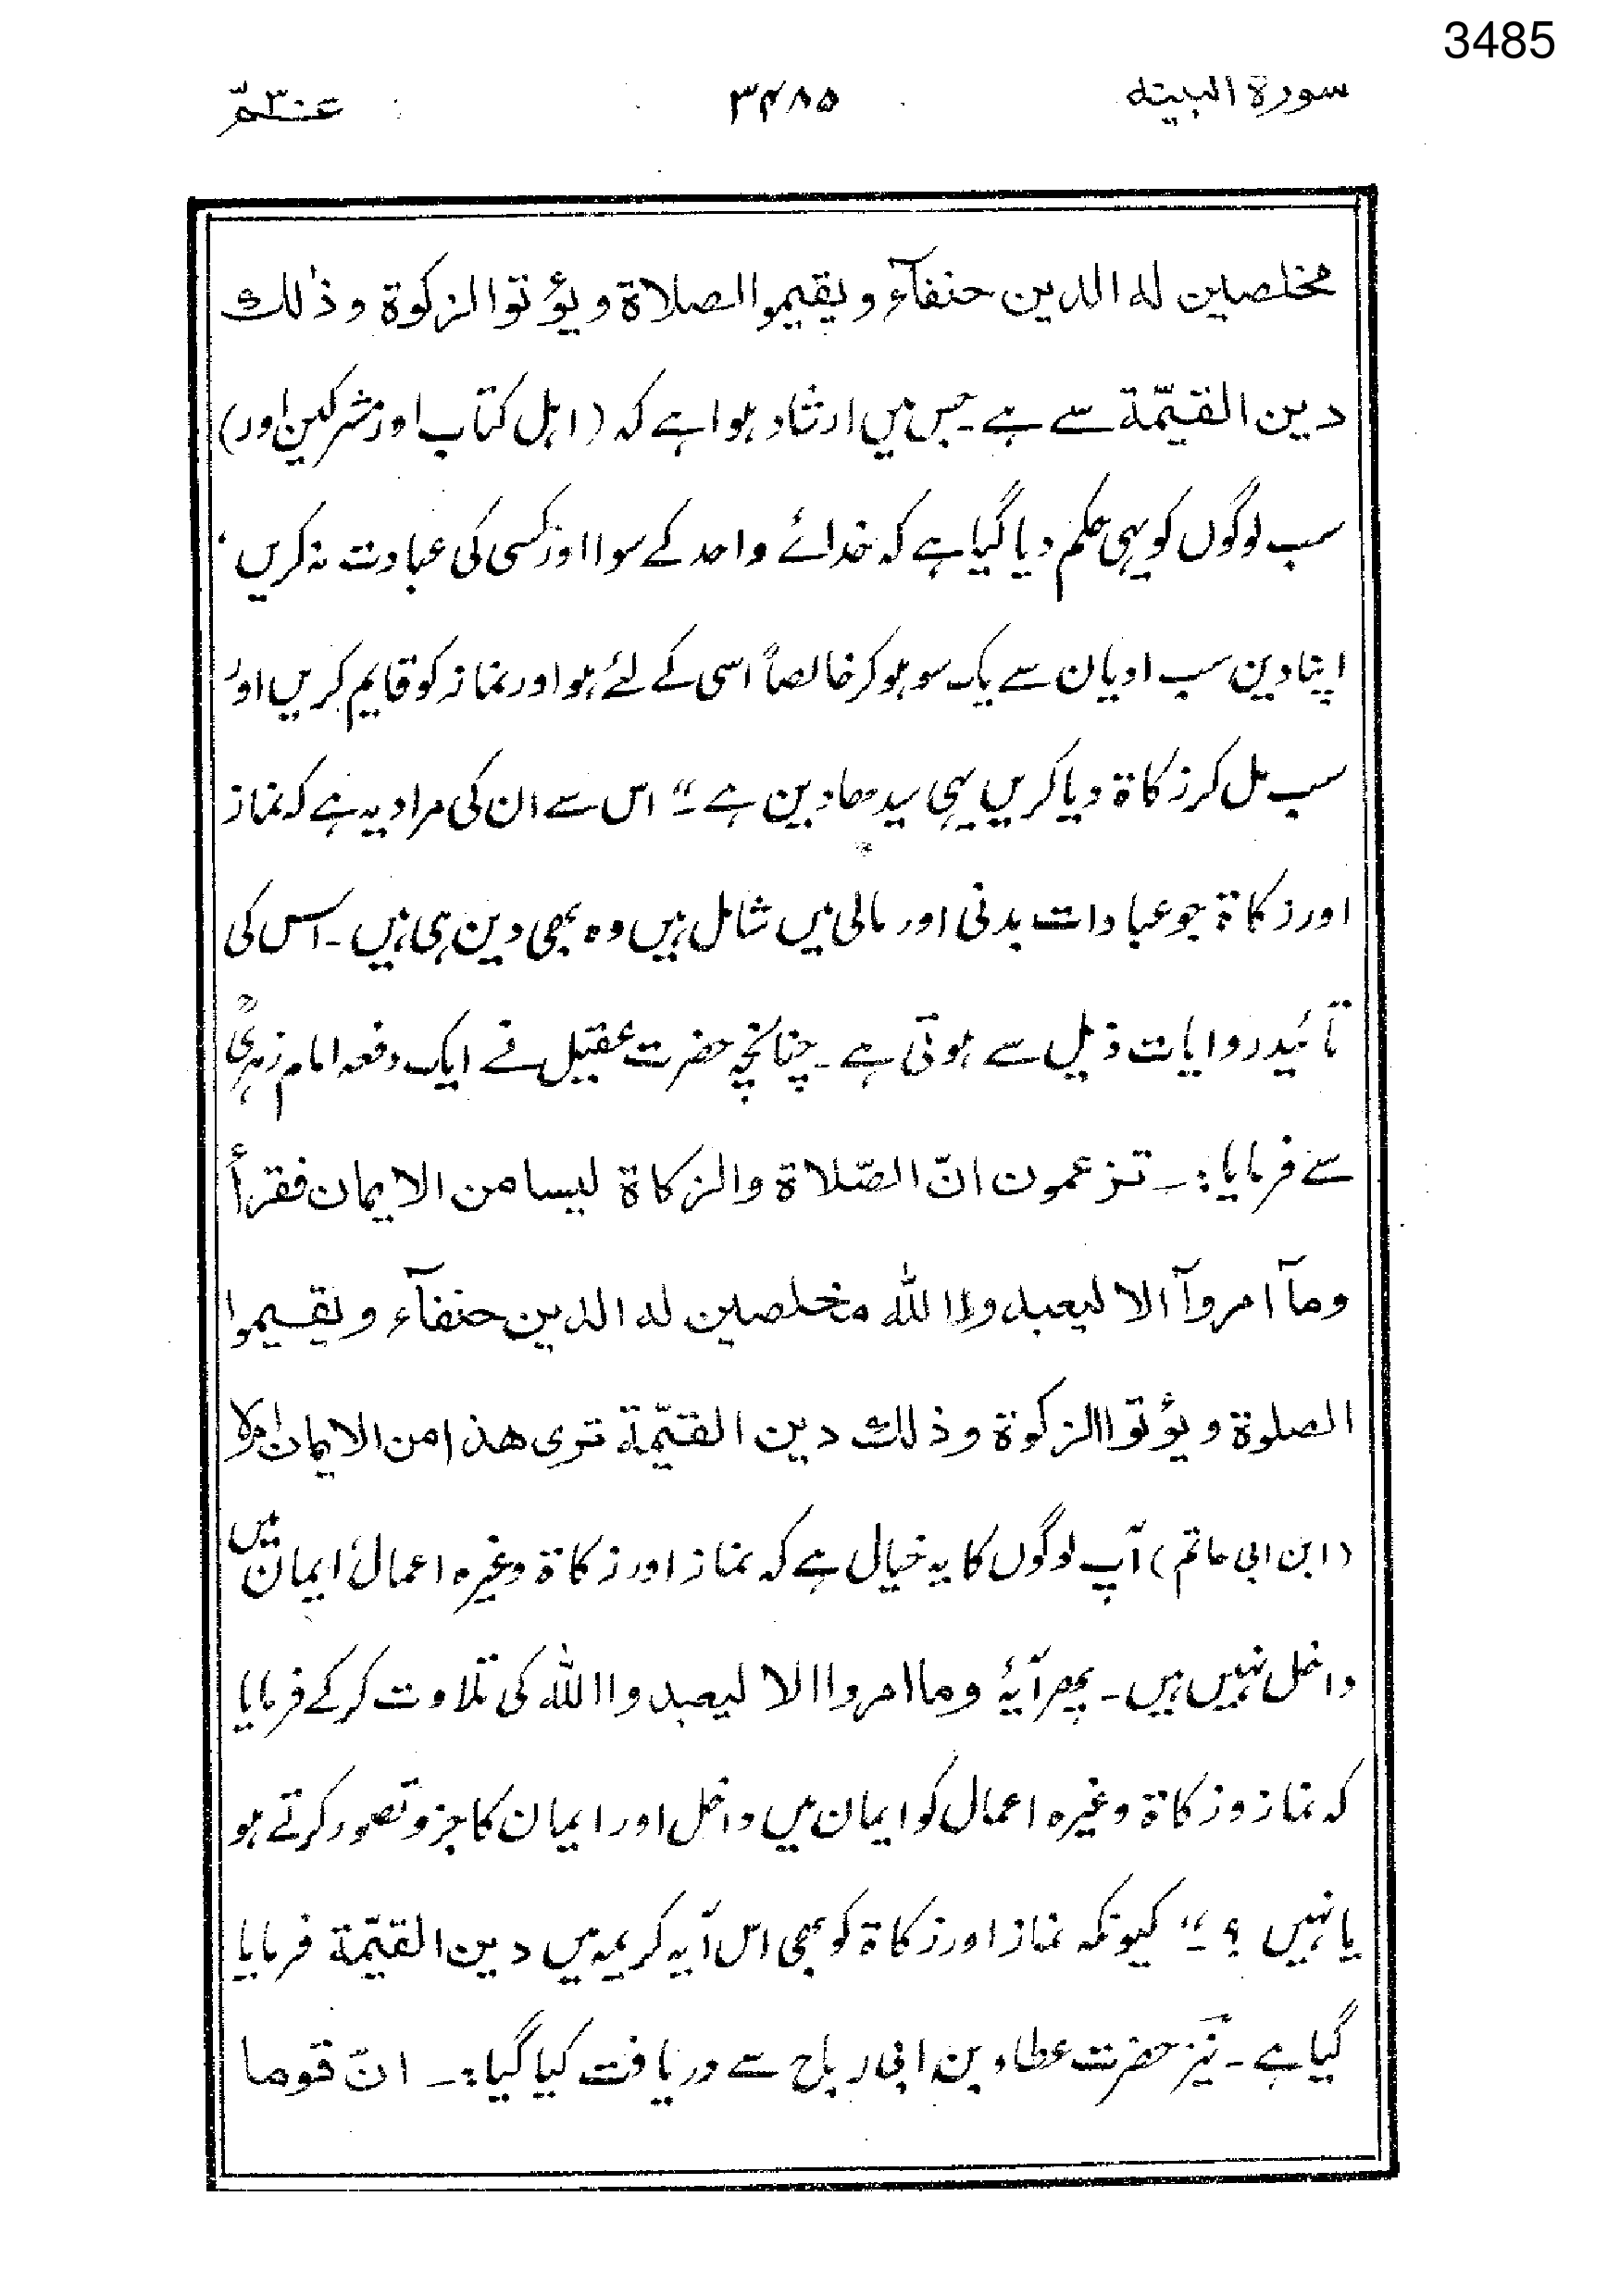 3485
سورۃ البینه ۳۴۸۵ عـــم ۳۰
مخلصین له الدین حنفآء و یقیموا الصلاة و یؤتوا الزکوة و ذٰلك
دین القیّمة سے ہے۔ جس میں ارشاد ہوا ہے کہ (اہل کتاب اور مشرکین اور)
سب لوگوں کو یہی حکم دیا گیا ہے کہ خدائے واحد کے سوا اور کسی کی عبادت نہ کریں،
اپنا دین سب ادیان سے یک سو ہو کر خالصاً اسی کے لئے ہو اور نماز کو قایم کریں اور
سب مل کر زکاة دیا کریں یہی سیدھا دین ہے۔" اس سے ان کی مراد یہ ہے کہ نماز
اور زکاة جو عبادات بدنی اور مالی میں شامل ہیں وہ بھی دین ہی ہیں۔ اس کی
تائید روایات ذیل سے ہوتی ہے۔ چنانچہ حضرت عقیل نے ایک دفعہ امام زہریؒ
سے فرمایا:۔ تزعمون انّ الصّلاة والزکاة لیسا من الایمان فقرأ
ومآ امروآ الا لیعبدوا الله مخلصین له الدین حنفآء ویقیموا
الصلوة و یؤتوا الزکوة وذلك دین القیّمة تری هذا من الایمان ام لا
(ابن ابی حاتم) آپ لوگوں کا یہ خیال ہے کہ نماز اور زکاة وغیرہ اعمال ایمان میں
داخل نہیں ہیں۔ پھر آیۂ وما امروا الا لیعبدوا الله کی تلاوت کر کے فرمایا
کہ نماز و زکاة وغیرہ اعمال کو ایمان میں داخل اور ایمان کا جزو تصور کرتے ہو
یا نہیں ؟۔" کیونکہ نماز اور زکاة کو بھی اس آیہ کریمہ میں دین القیّمة فرمایا
گیا ہے۔ نیز حضرت عطاء بن ابی رباح سے دریافت کیا گیا:۔ انّ قوما